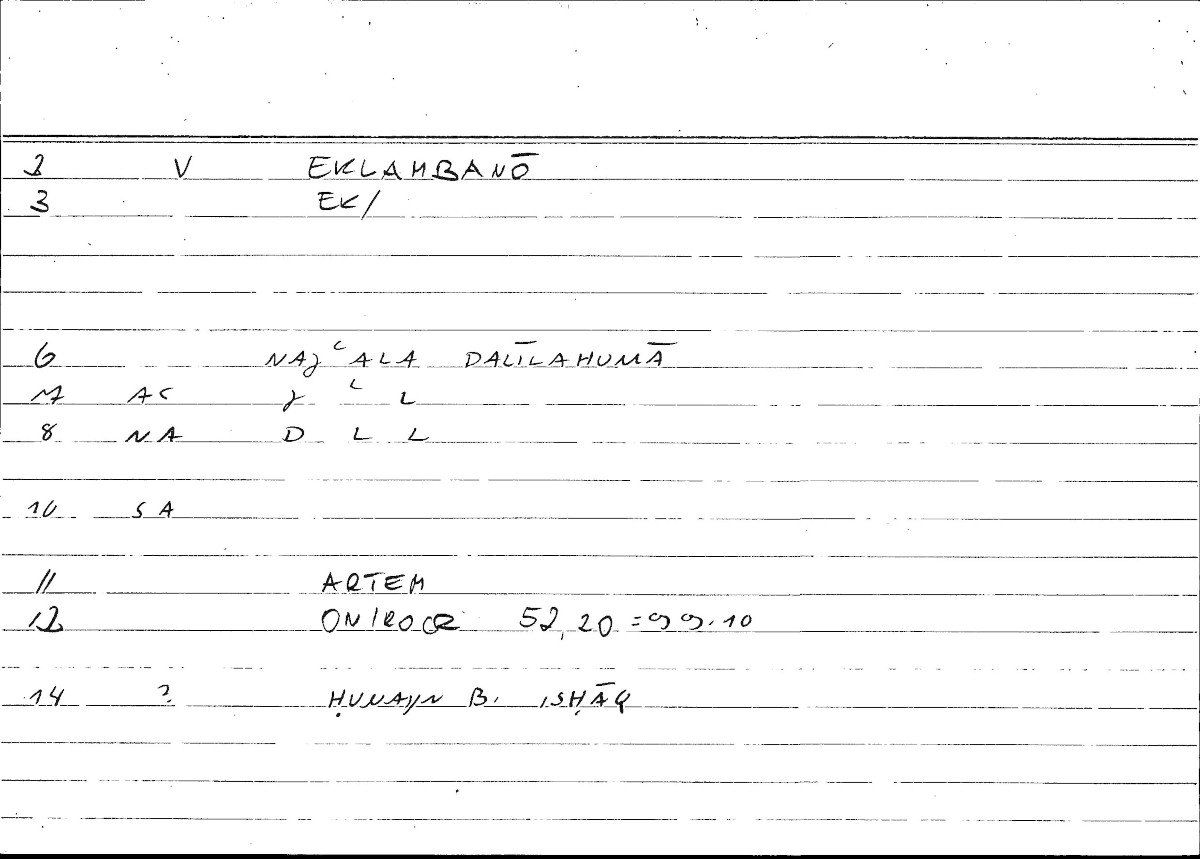 2 V EKLAMBANŌ
3 EK/
6 NAJʿALA DALĪLAHUMĀ
M7 AC J ʿ L
8 NA D L L
10 SA
11 ARTEM
12 ONIROCR 52,20 = 99.10
14 ? ḤUNAYN B. ISḤĀQ